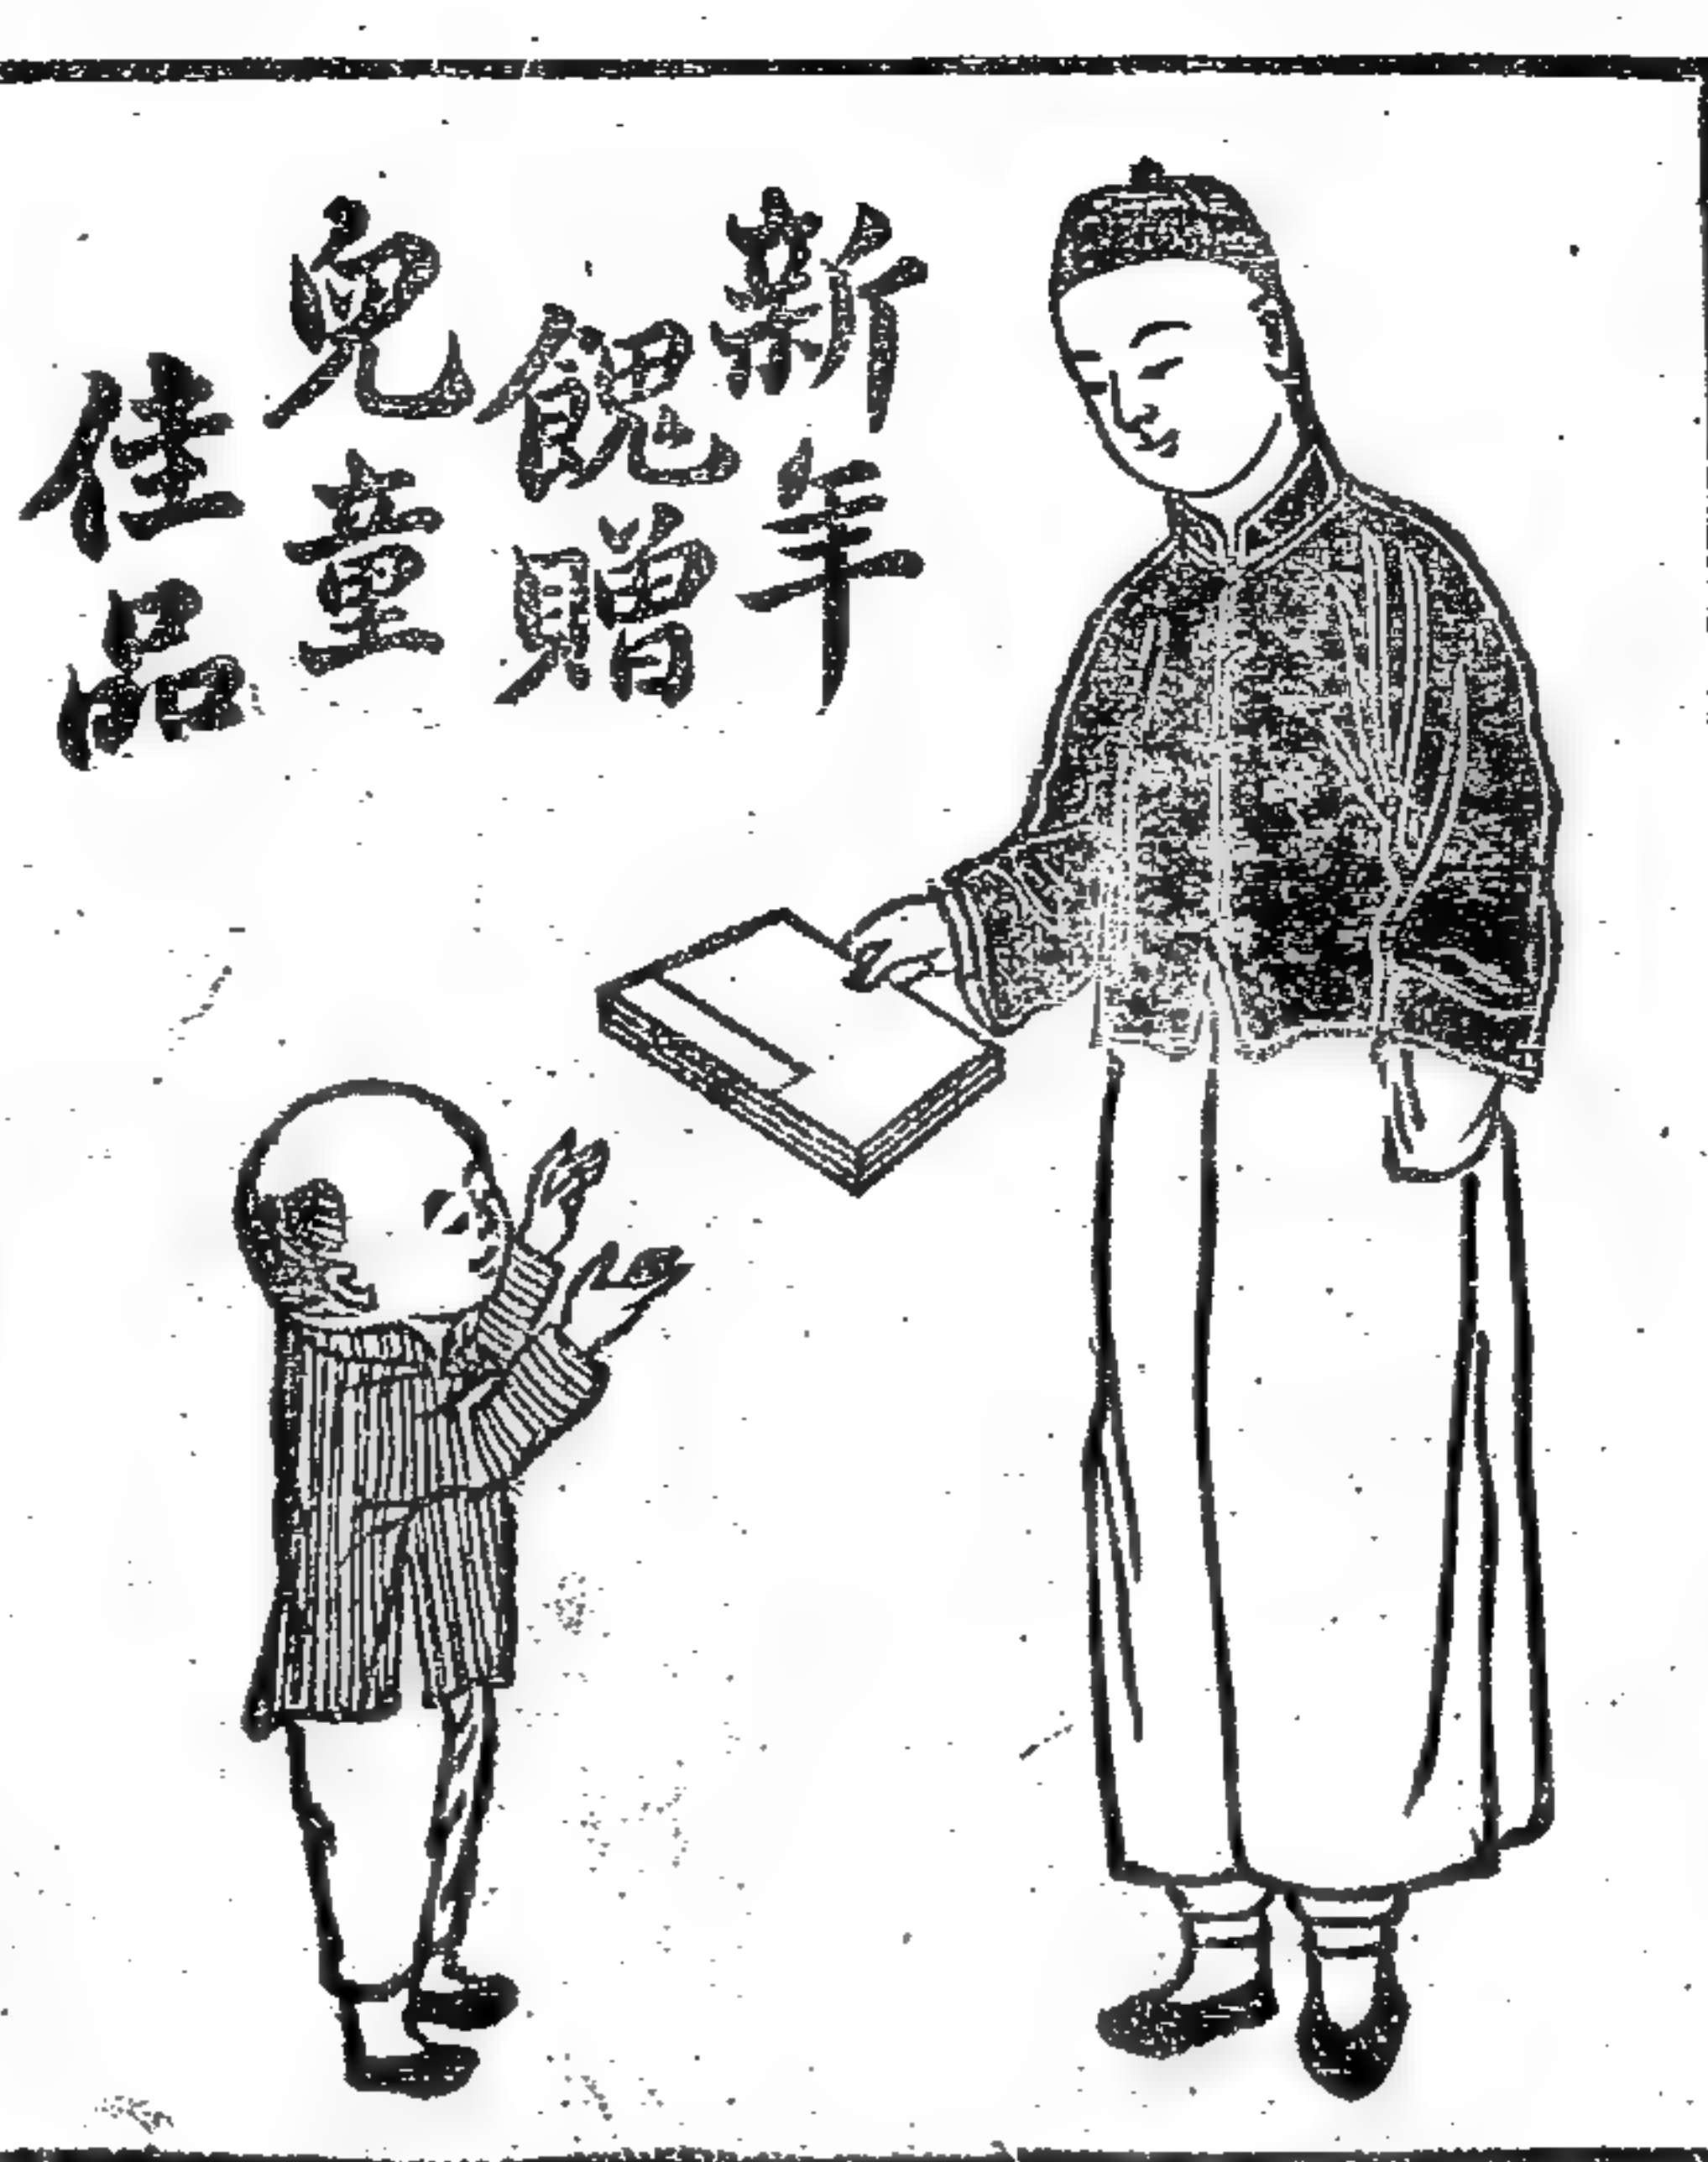 新年
餽贈
兒童
佳品